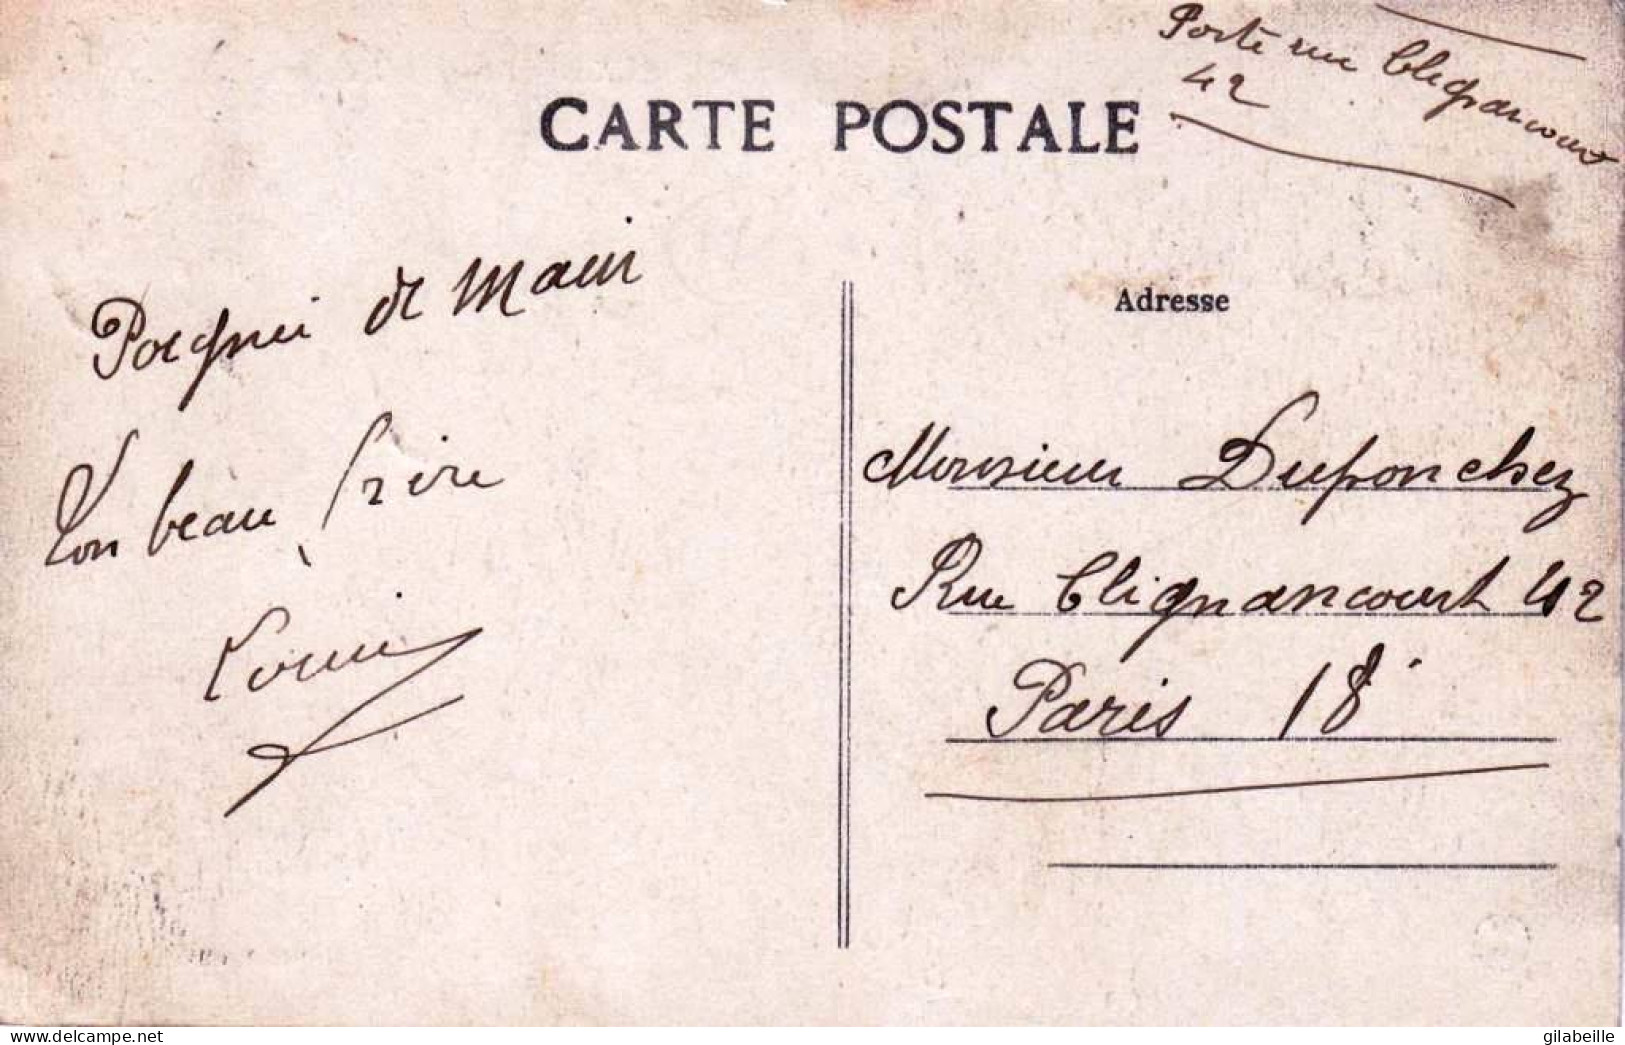 Porte rue Clignancourt
42
CARTE POSTALE
Poignée de Main
Ton beau frère
Louis
Adresse
Monsieur Duponchez
Rue Clignancourt 42
Paris 18
delcampe.net
gilabeille